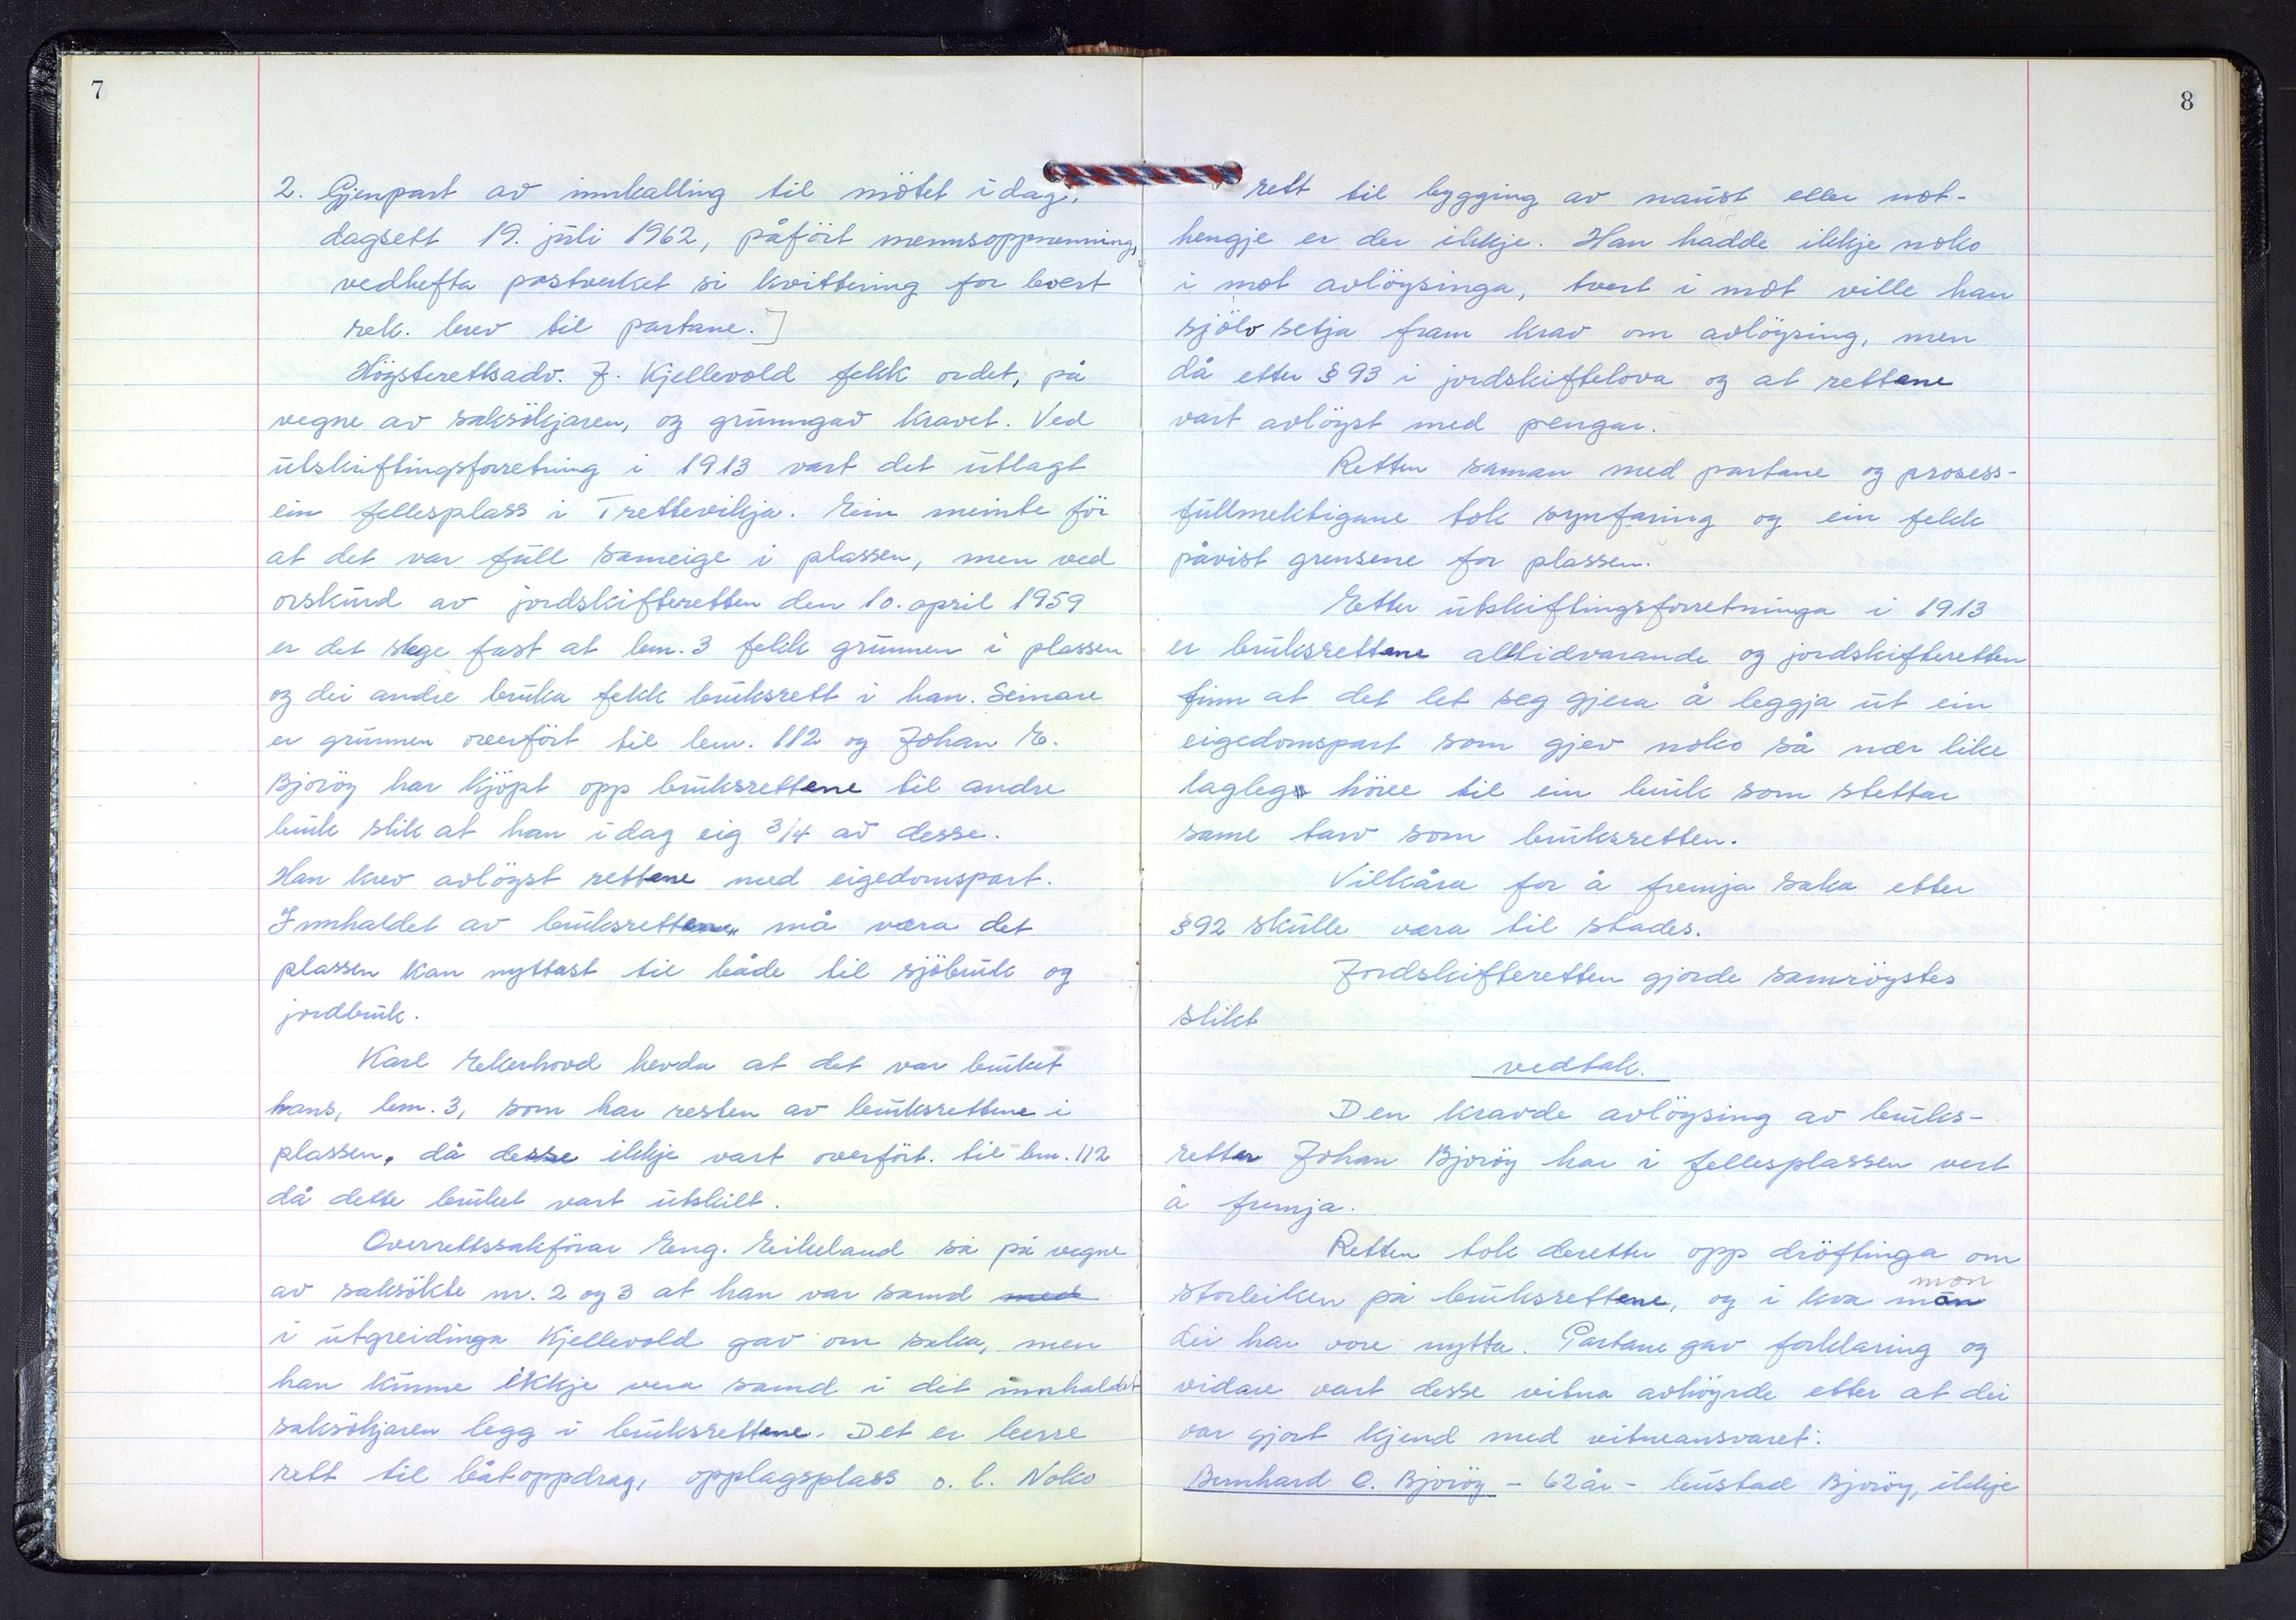 7
2. Gjenpart av innkalling til mötet i dag,
dagsett 19. juli 1962, påfört mennsoppnemning,
vedhefta postverket si kvittering for levert
rek. brev til partane.]
Högsterettsadv. J. Kjellevold fekk ordet, på
vegne av saksökjaren, og grunngav kravet. Ved
utskiftingsforretning i 1913 vart det utlagt
ein fellesplass i Trettevikja. Ein meinte för
at det var full sameige i plassen, men ved
orskurd av jordskifteretten den 10. april 1959
er det slege fast at bnr. 3 fekk grunnen i plassen
og dei andre bruka fekk bruksrett i han. Seinare
er grunnen overfört til bnr. 112 og Johan E.
Bjoröy har kjöpt opp bruksrettene til andre
bruk slik at han i dag eig 3/4 av desse.
Han krev avlöyst rettene med eigedomspart.
Innhaldet av bruksretten må vera det
plassen kan nyttast til både til sjöbruk og
jordbruk.
Karl Ekerhovd hevda at det var bruket
hans, bnr. 3, som har resten av bruksrettene i
plassen, då desse ikkje vart overfört til bnr. 112
då dette bruket vart utskilt.
Overrettssakförar Eng. Eikeland sa på vegne
av saksökte nr. 2 og 3 at han var samd med
i utgreidinga Kjellevold gav om saka, men
han kunne ikkje vera samd i det innhaldet
saksökjaren legg i bruksrettene. Det er berre
rett til båtoppdrag, opplagsplass o. l. Noko
8
rett til bygging av naust eller not-
hengje er der ikkje. Han hadde ikkje noko
i mot avlöysinga, tvert i mot ville han
sjölv setja fram krav om avlöysing, men
då etter § 93 i jordskiftelova og at rettane
vart avlöyst med pengar.
Retten saman med partane og prosess-
fullmektigane tok synfaring og ein fekk
påvist grensene for plassen.
Etter utskiftingsforretninga i 1913
er bruksrettane alltidvarande og jordskifteretten
finn at det let seg gjera å leggja ut ein
eigedomspart som gjev noko så nær like
lagleg höve til ein bruk som stettar
same tarv som bruksretten.
Vilkåra for å fremja saka etter
§ 92 skulle vera til stades.
Jordskifteretten gjorde samröystes
slikt
vedtak.
Den kravde avlöysing av bruks-
retter Johan Bjoröy har i fellesplassen vert
å fremja.
Retten tok deretter opp dröftinga om
storleiken på bruksrettene, og i kva mon
mon
dei har vore nytta. Partane gav forklaring og
vidare vart desse vitna avhöyrde etter at dei
var gjort kjend med vitneansvaret:
Bernhard O. Bjoröy – 62 år – bustad Bjoröy, ikkje